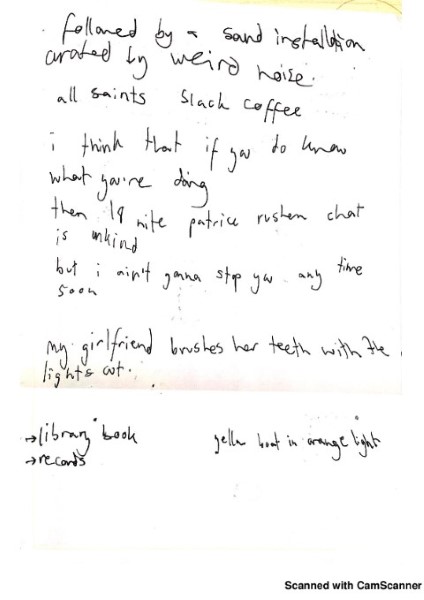 followed by a sand installation
curated by weird noise.
all saints slack coffee
i think that if you do know
what you're doing
then 19 nite patrice rushen chat
is unkind
but i ain't gonna stop you any time
soon
my girlfriend brushes her teeth with the
lights out.
→library book
→records
yella boat in orange light
Scanned with CamScanner